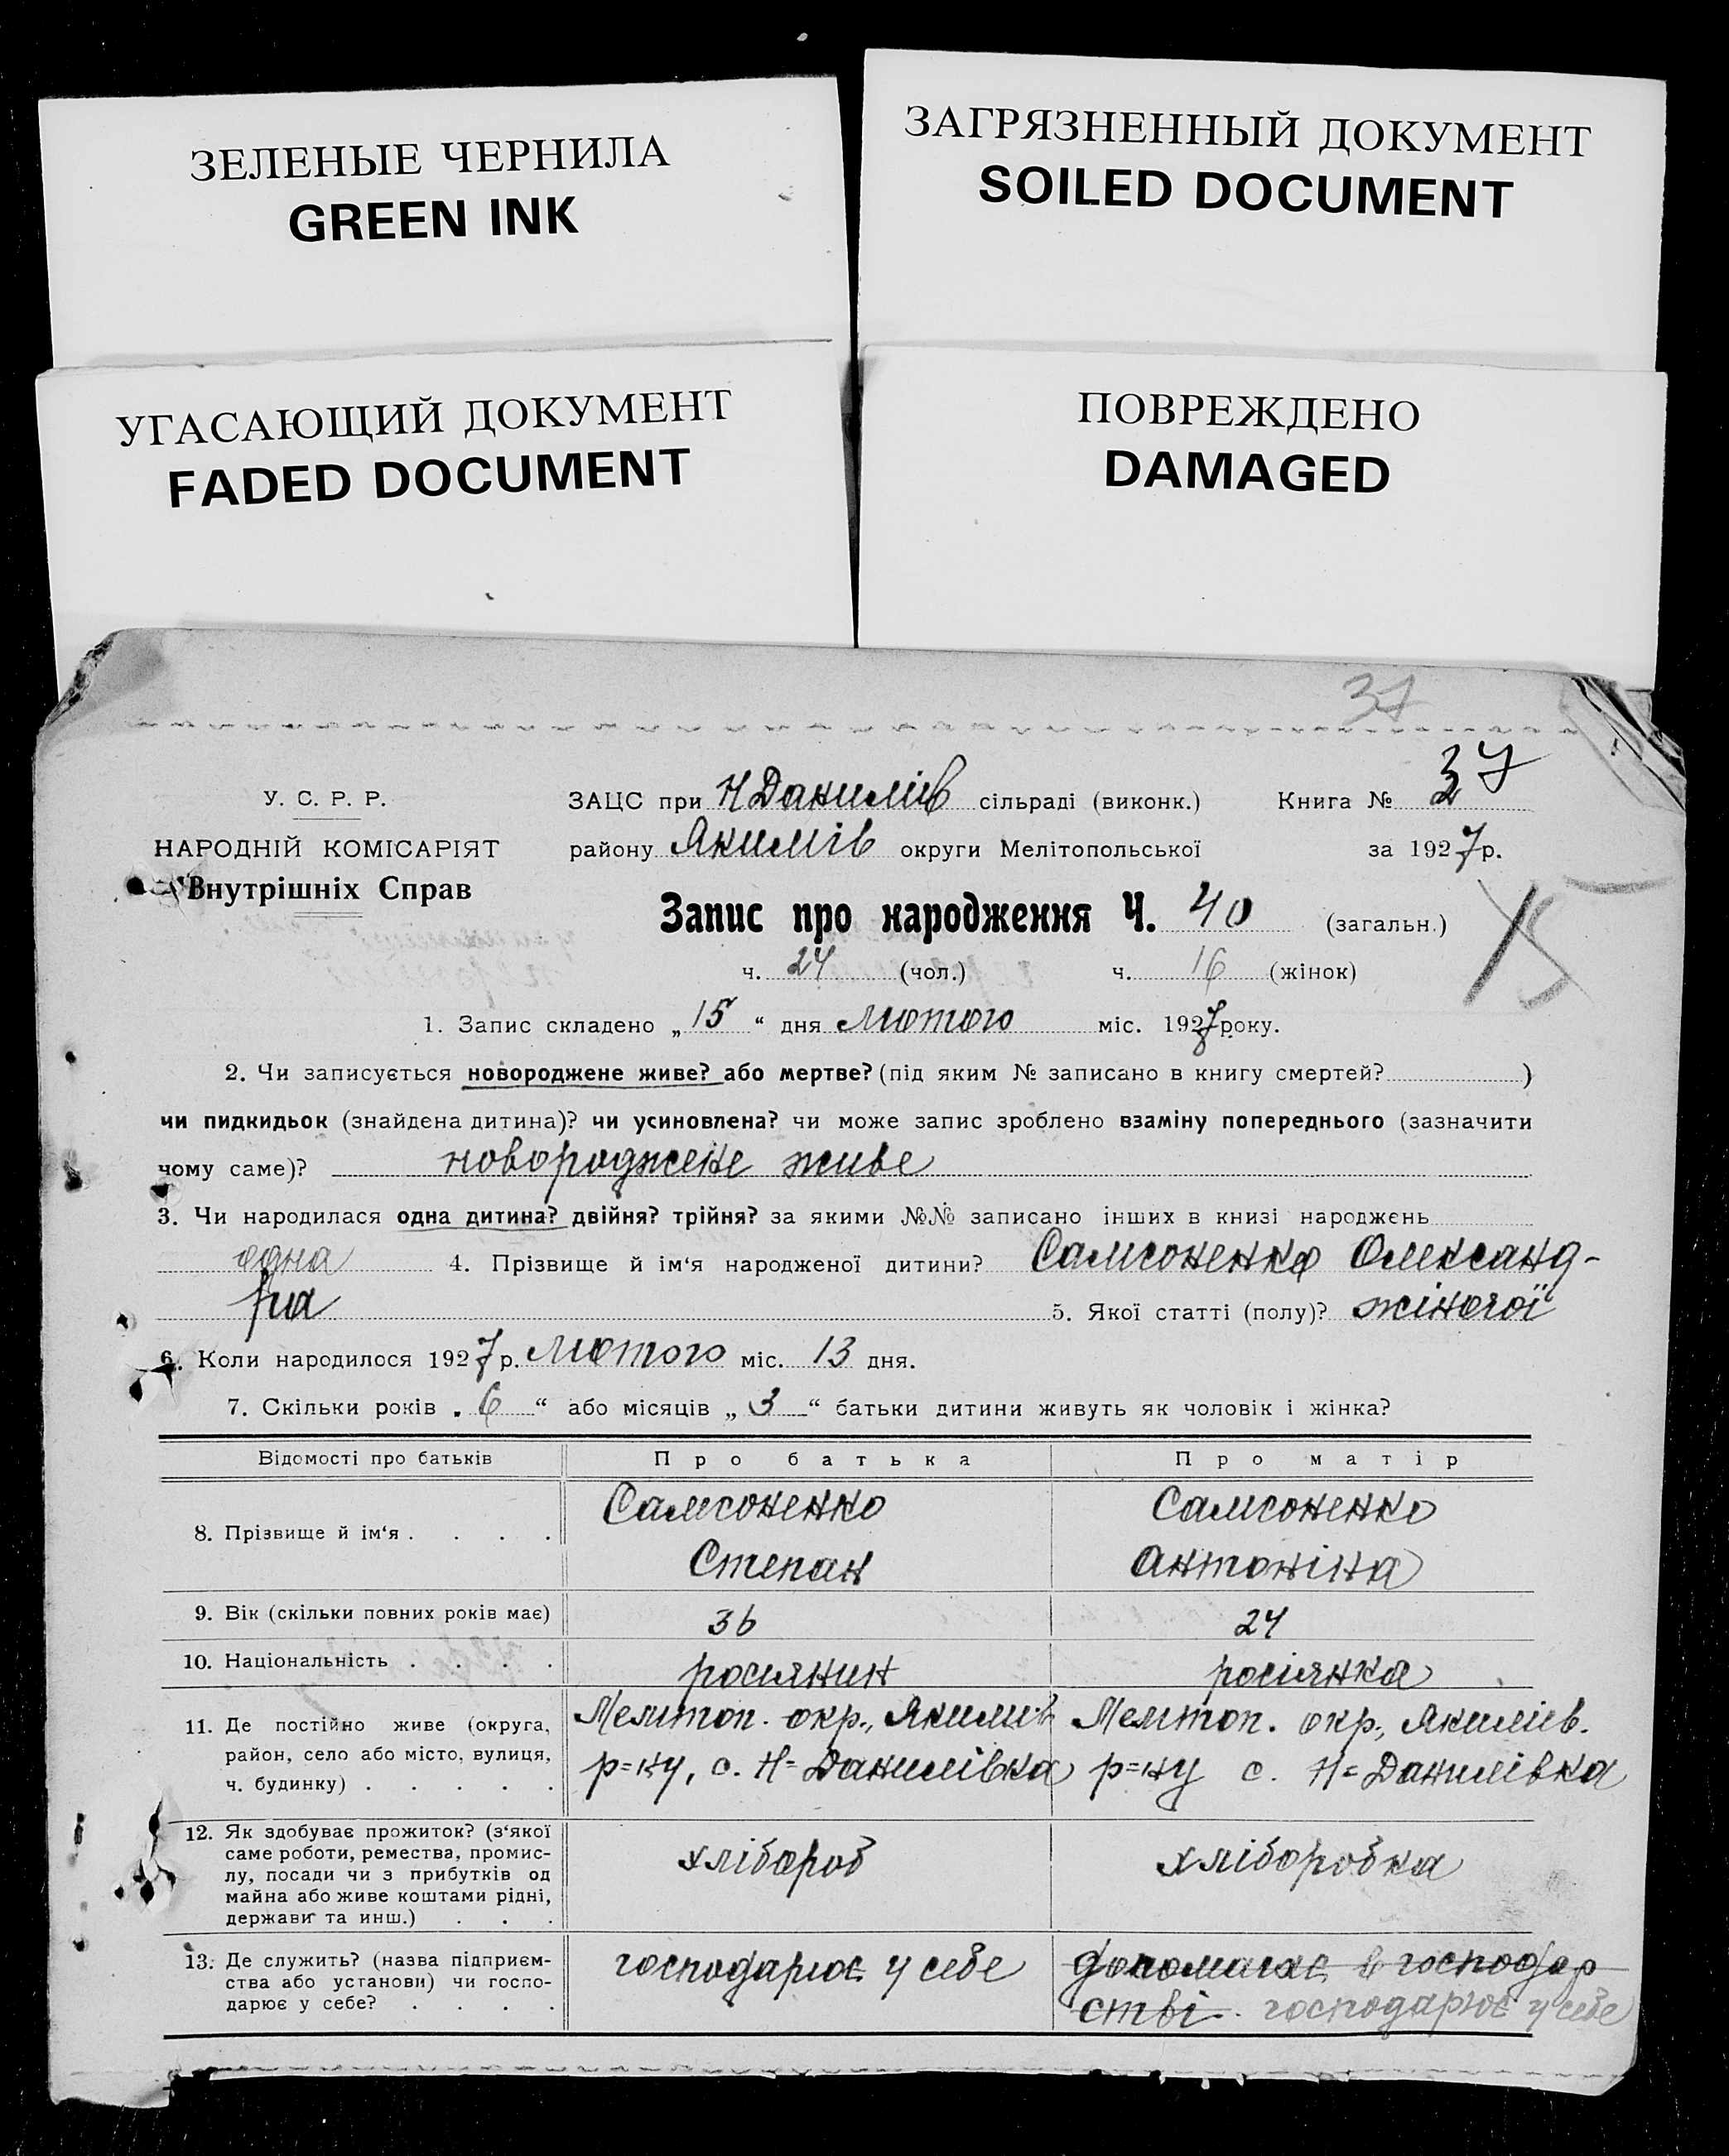 ЗЕЛЕНЫЕ ЧЕРНИЛА
GREEN INK
ЗАГРЯЗНЕННЫЙ ДОКУМЕНТ
SOILED DOCUMENT
УГАСАЮЩИЙ ДОКУМЕНТ
FADED DOCUMENT
ПОВРЕЖДЕНО
DAMAGED
37
У. С. Р. Р.
НАРОДНІЙ КОМІСАРІЯТ
Внутрішніх Справ
ЗАЦС при Н Данилів сільраді (виконк.) Книга № 37
району Якимів округи Мелітопольської за 1927 р.
Запис про народження Ч. 40 (загальн.)
ч. 24 (чол.) ч. 16 (жінок)
1. Запис складено „ 15 “ дня лютого міс. 1927 року.
2. Чи записується новороджене живе? або мертве? (під яким № записано в книгу смертей? )
чи пидкидьок (знайдена дитина)? чи усиновлена? чи може запис зроблено взаміну попереднього (зазначити
чому саме)? новороджене живе
3. Чи народилася одна дитина? двійня? трійня? за якими №№ записано інших в книзі народжень
одна 4. Прізвище й ім‘я народженої дитини? Самсоненко Олександ-
ра 5. Якої статті (полу)? жіночої
6. Коли народилося 1927 р. лютого міс. 13 дня.
7. Скільки років „ 6 “ або місяців „ 3 “ батьки дитини живуть як чоловік і жінка?
Відомості про батьків Про батька Про матір
8. Прізвище й ім‘я . . . . Самсоненко Степан Самсоненко Антоніна
9. Вік (скільки повних років має) 36 24
10. Національність . . . . росиянин росіянка
11. Де постійно живе (округа,
район, село або місто, вулиця,
ч. будинку) . . . . .
Мелитоп. окр., Якимив
р=ну, с. Н=Данилівка
Мелітоп. окр., Якимів.
р=ну с. Н=Данилівка
12. Як здобуває прожиток? (з‘якої
саме роботи, ремества, промис-
лу, посади чи з прибутків од
майна або живе коштами рідні,
держави та инш.) . . .
хлібороб
хліборобка
13. Де служить? (назва підприєм-
ства або установи) чи госпо-
дарює у себе? . . . .
господарює у себе
допомагає в господар
стві. господарює у себе